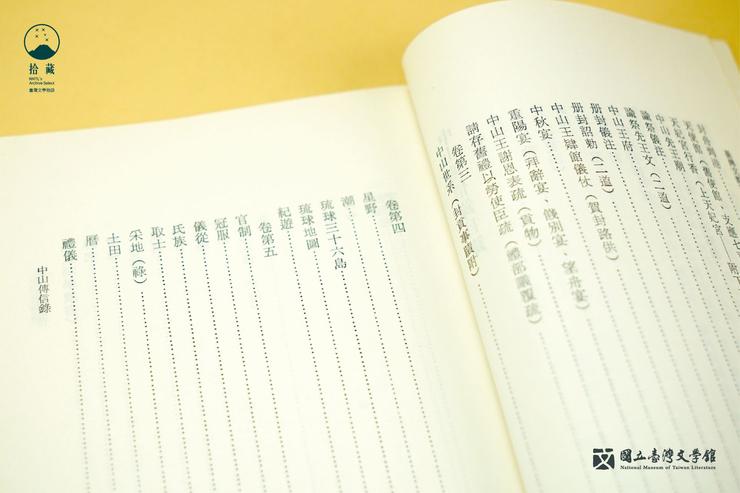 拾藏
NMTL's
Archive Select
臺灣文學物語
天妃宮行香
中山先王廟
諭祭儀注
諭祭先王文（二道）
中山王府
册封儀注
册封詔勅（二道）
中山王肄館儀仗（賀封路供）
中秋宴
重陽宴（拜辭宴、餞別宴、望舟宴）
中山王謝恩表疏（貢物）
請存舊禮以勞使臣疏（禮部議覆疏）
卷第三
中山世系
卷第四
星野
潮
琉球三十六島
琉球地圖
紀遊
卷第五
官制
冠服
儀從
氏族
取士
采地（祿）
土田
曆
禮儀
中山傳信錄
國立臺灣文學館
National Museum of Taiwan Literature